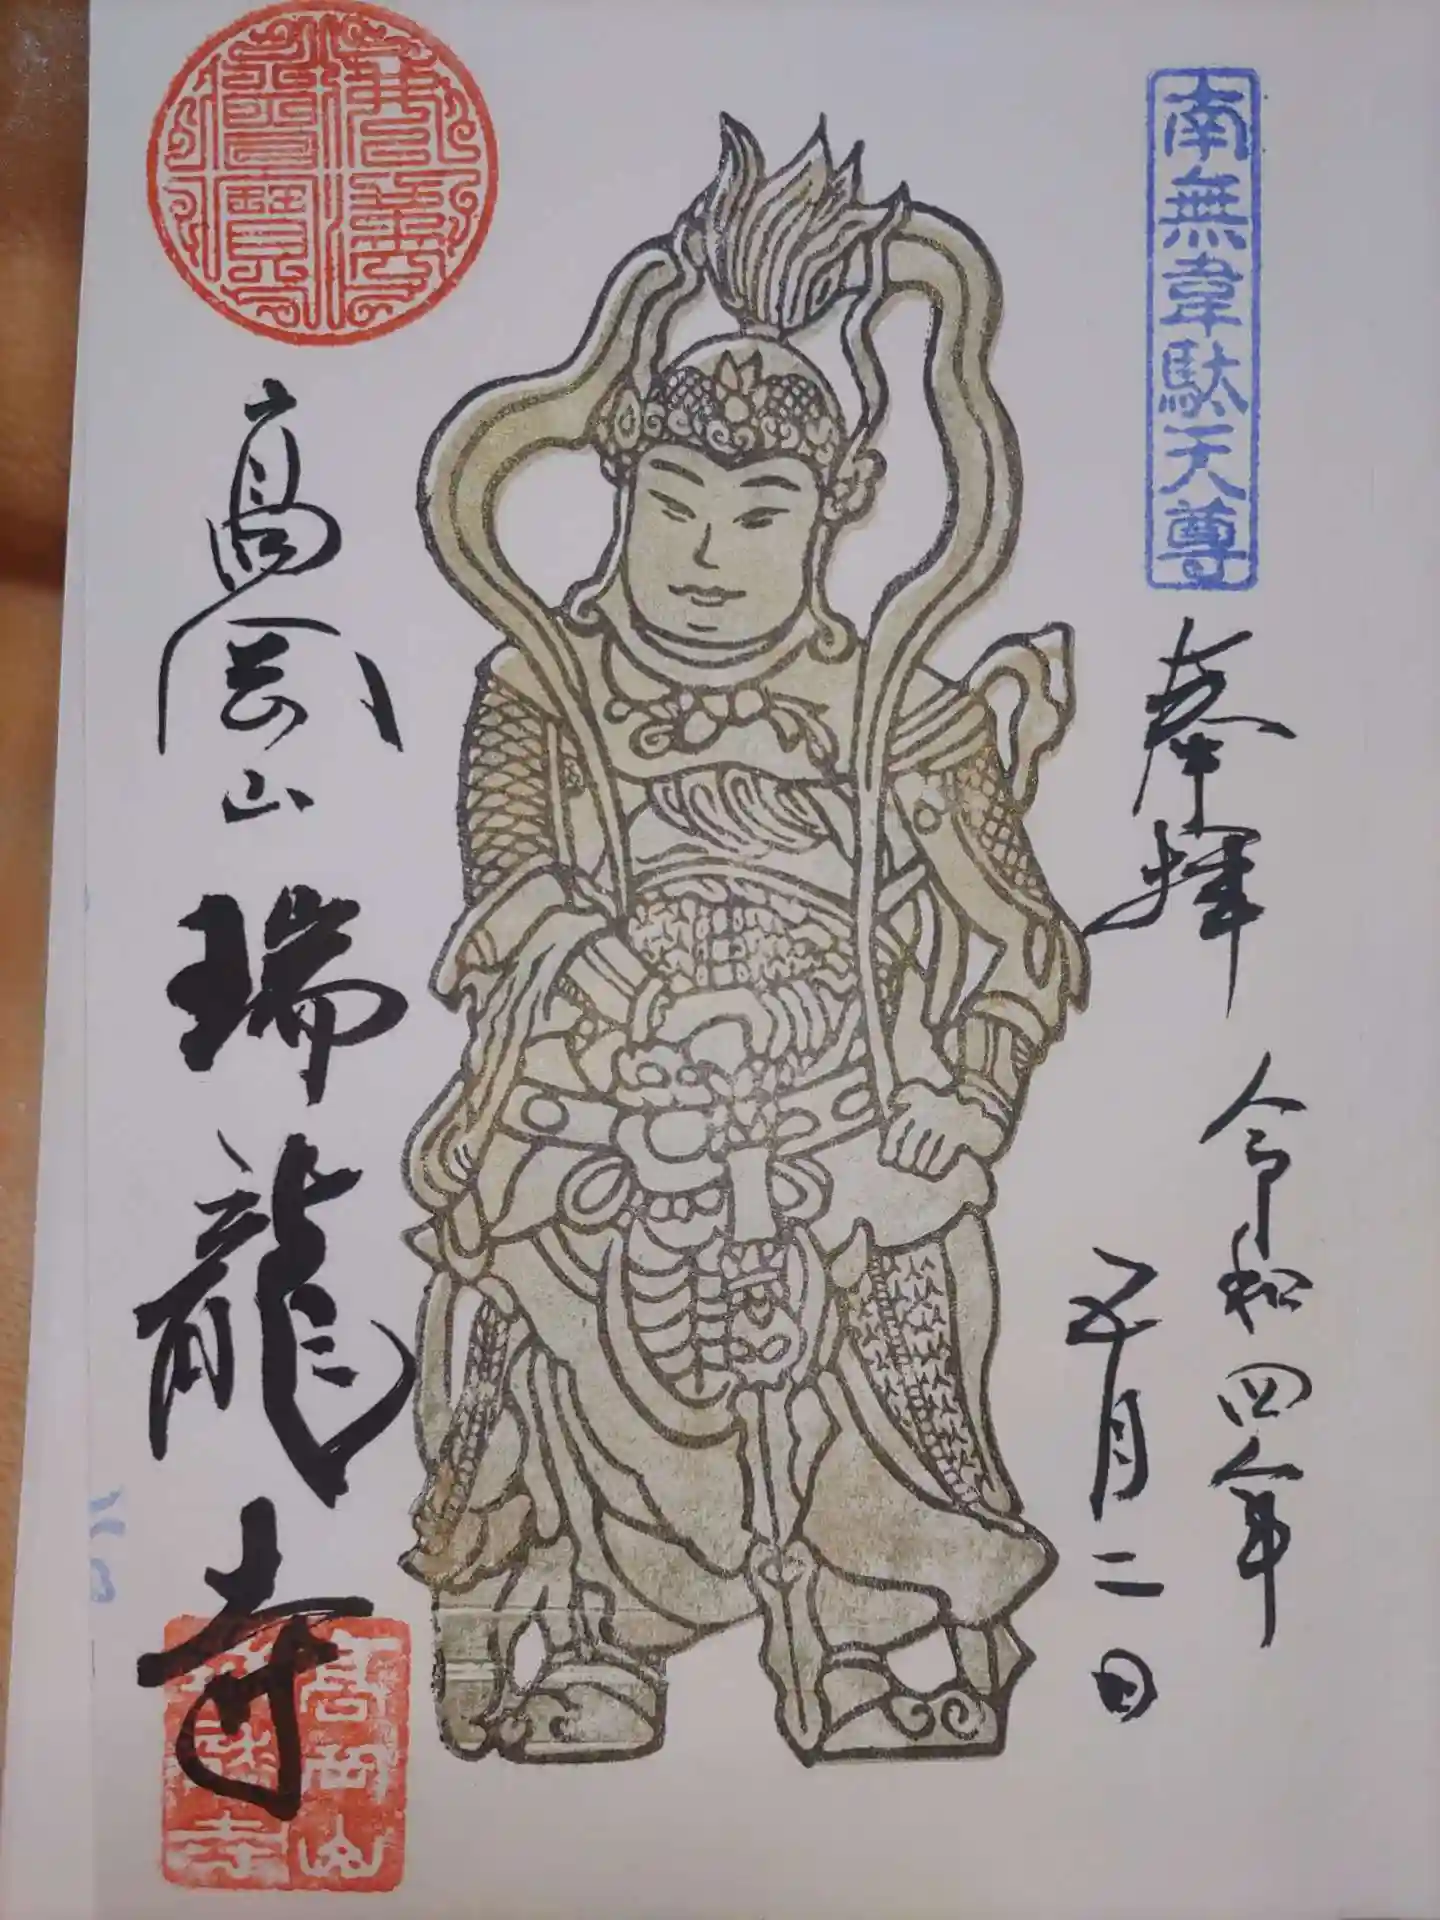 南無韋駄天尊
奉拝
令和四年
五月二日
高岡山
瑞龍寺
佛法僧寶
高岡山
瑞龍寺